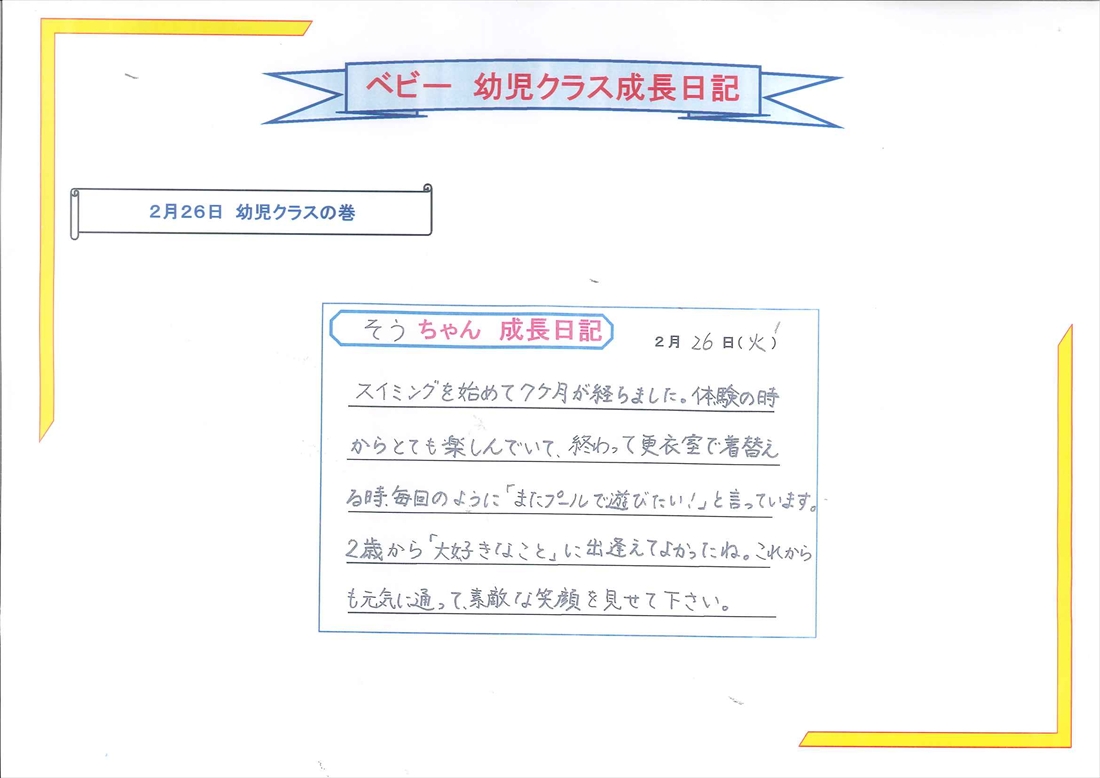 ベビー　幼児クラス成長日記
2月26日　幼児クラスの巻
そうちゃん　成長日記　2月26日(火)
スイミングを始めて7ケ月が経ちました。体験の時
からとても楽しんでいて、終わって更衣室で着替え
る時、毎回のように「またプールで遊びたい！」と言っています。
2歳から「大好きなこと」に出逢えてよかったね。これから
も元気に通って、素敵な笑顔を見せて下さい。